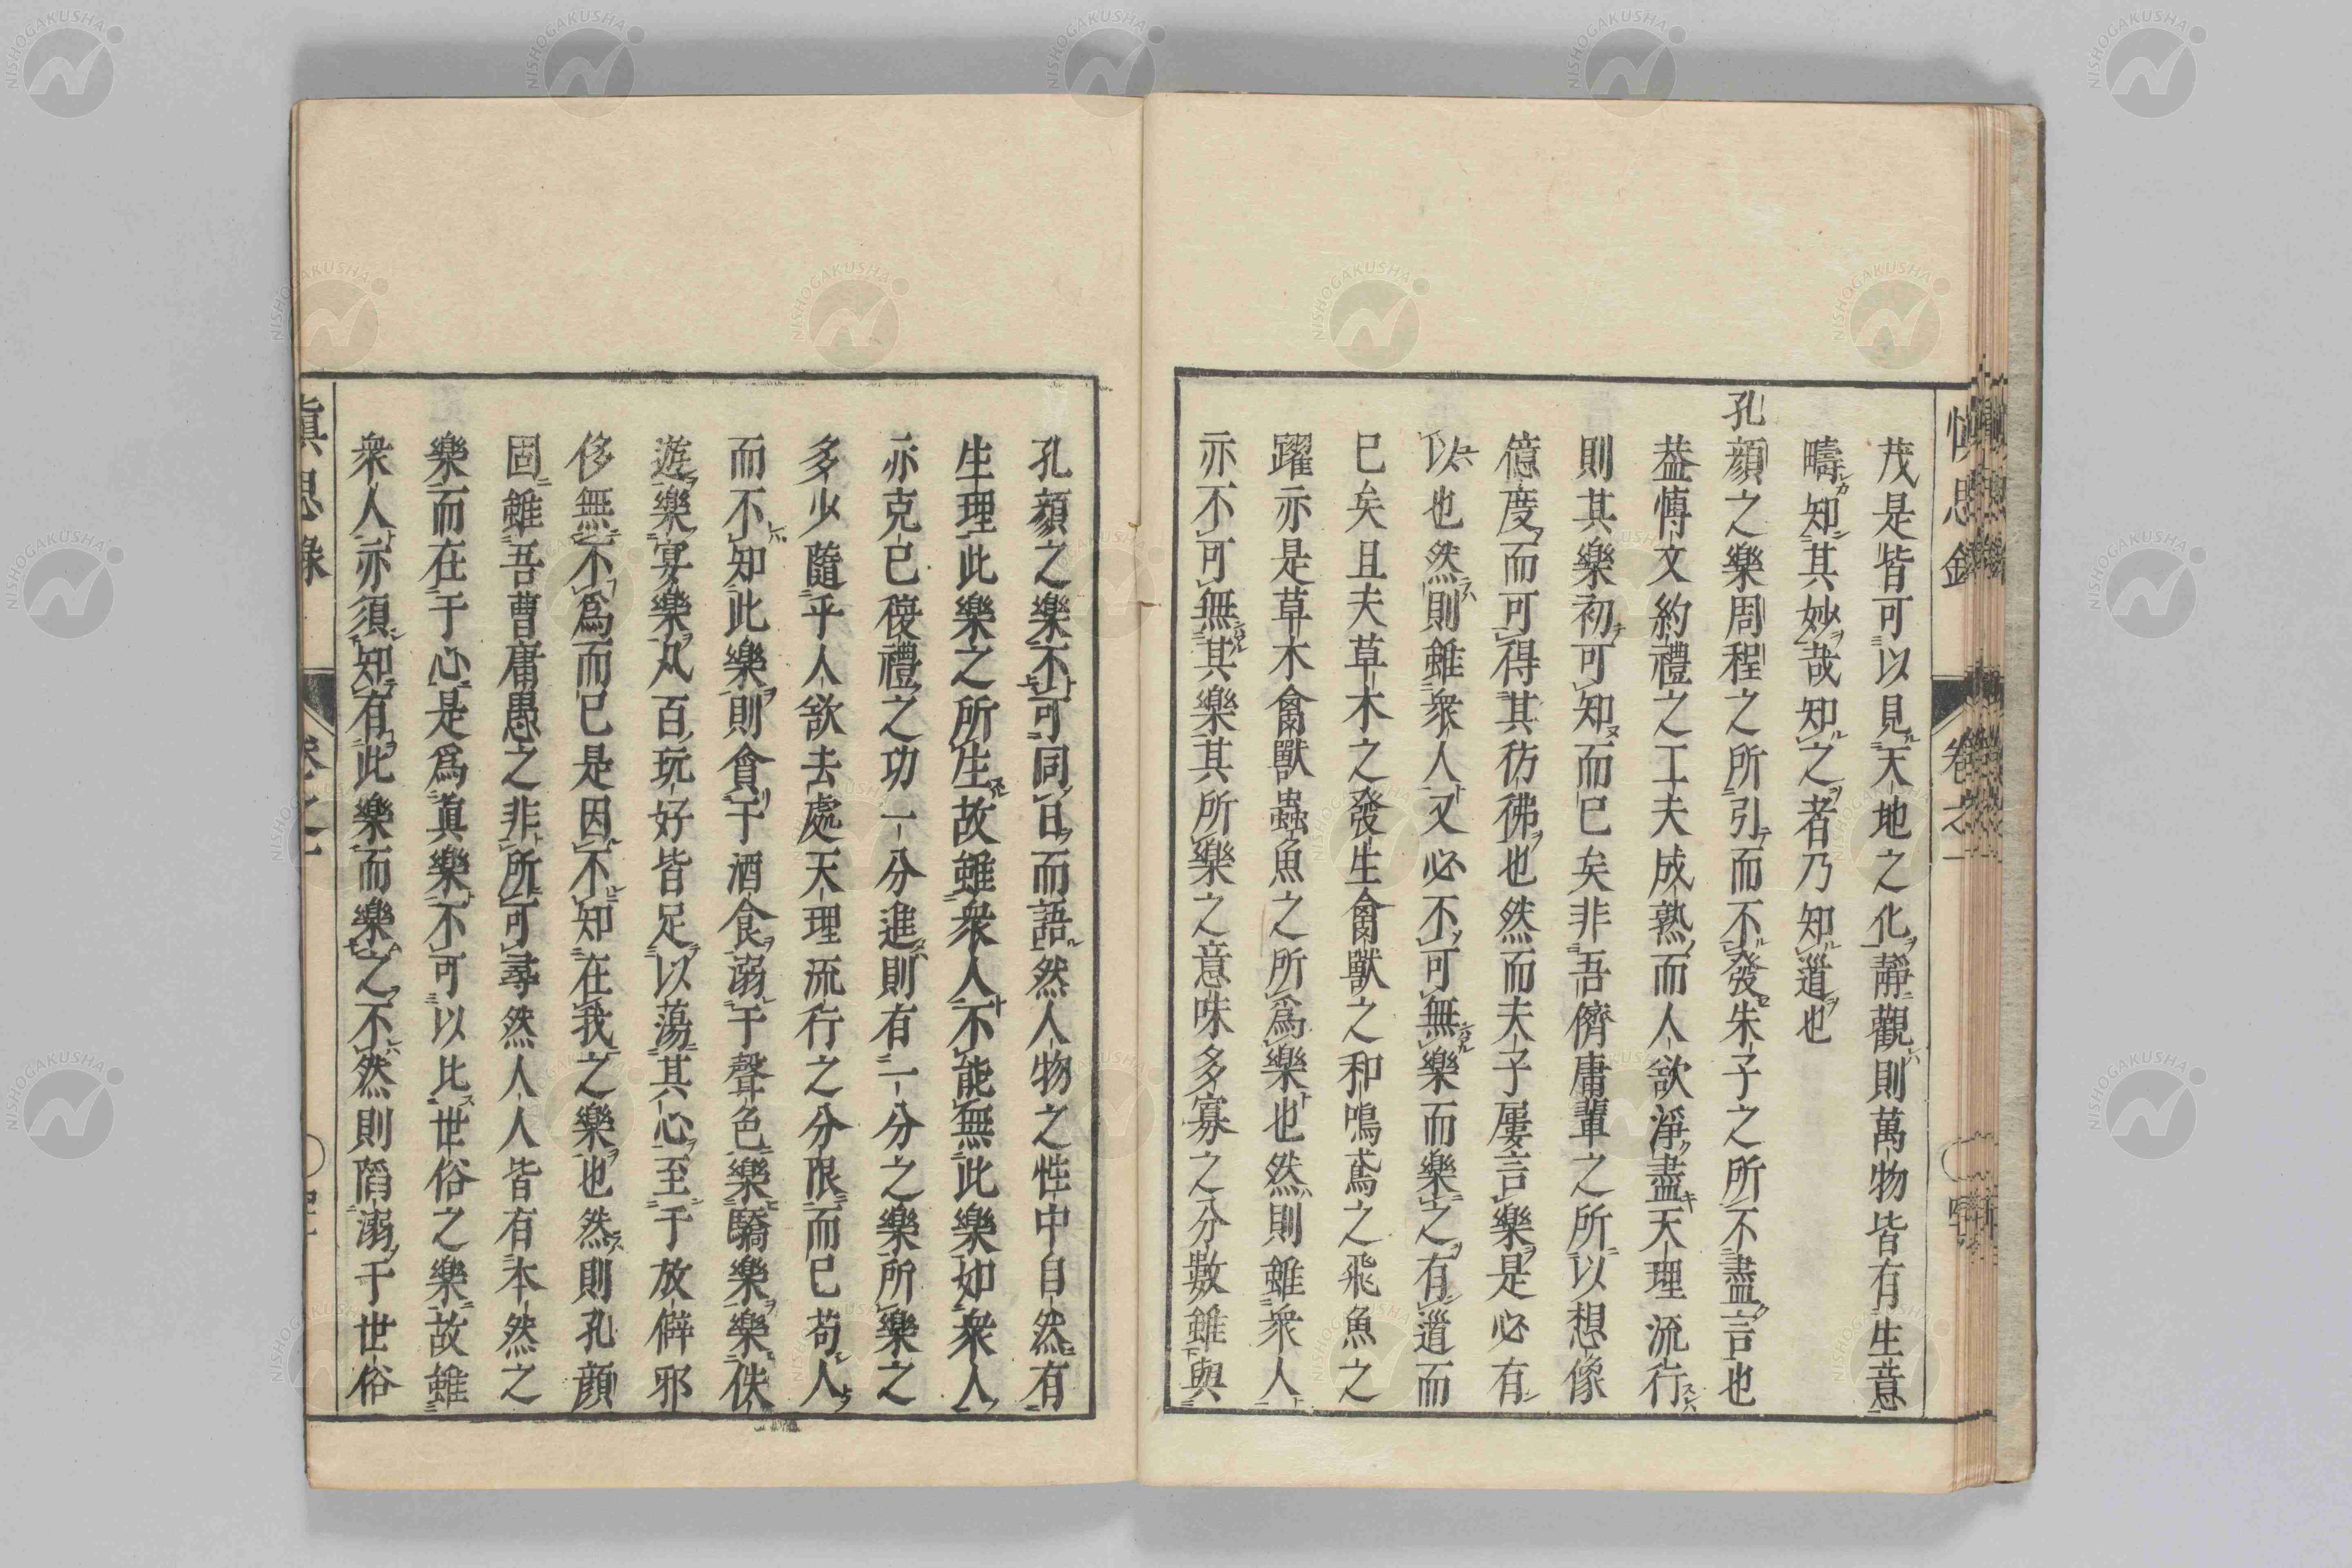 茂是皆可以見天地之化靜觀則萬物皆有生意
疇知其妙哉知之者乃知道也
孔顏之樂周程之所引而不發朱子之所不盡言也
葢博文約禮之工夫成熟而人欲淨盡天理流行
則其樂初可知而已矣非吾儕庸輩之所以想像
億度而可得其彷彿也然而夫子屢言樂是必有
以也然則雖衆人又必不可無樂而樂之有道而
已矣且夫草木之發生禽獸之和鳴鳶之飛魚之
躍亦是草木禽獸蟲魚之所爲樂也然則雖衆人
亦不可無其樂其所樂之意味多寡之分數雖與
孔顏之樂不可同日而語然人物之性中自然有
生理此樂之所生故雖衆人不能無此樂如衆人
亦克己復禮之功一分進則有一分之樂所樂之
多少隨乎人欲去處天理流行之分限而已苟人
而不知此樂則貪于酒食溺于聲色樂驕樂樂佚
遊樂宴樂凡百玩好皆足以蕩其心至于放僻邪
侈無不爲而已是因不知在我之樂也然則孔顏
固雖吾曹庸愚之非所可尋然人人皆有本然之
樂而在于心是爲眞樂不可以比世俗之樂故雖
衆人亦須知有此樂而樂之不然則陷溺于世俗
慎思録
卷之一
NISHOGAKUSHA